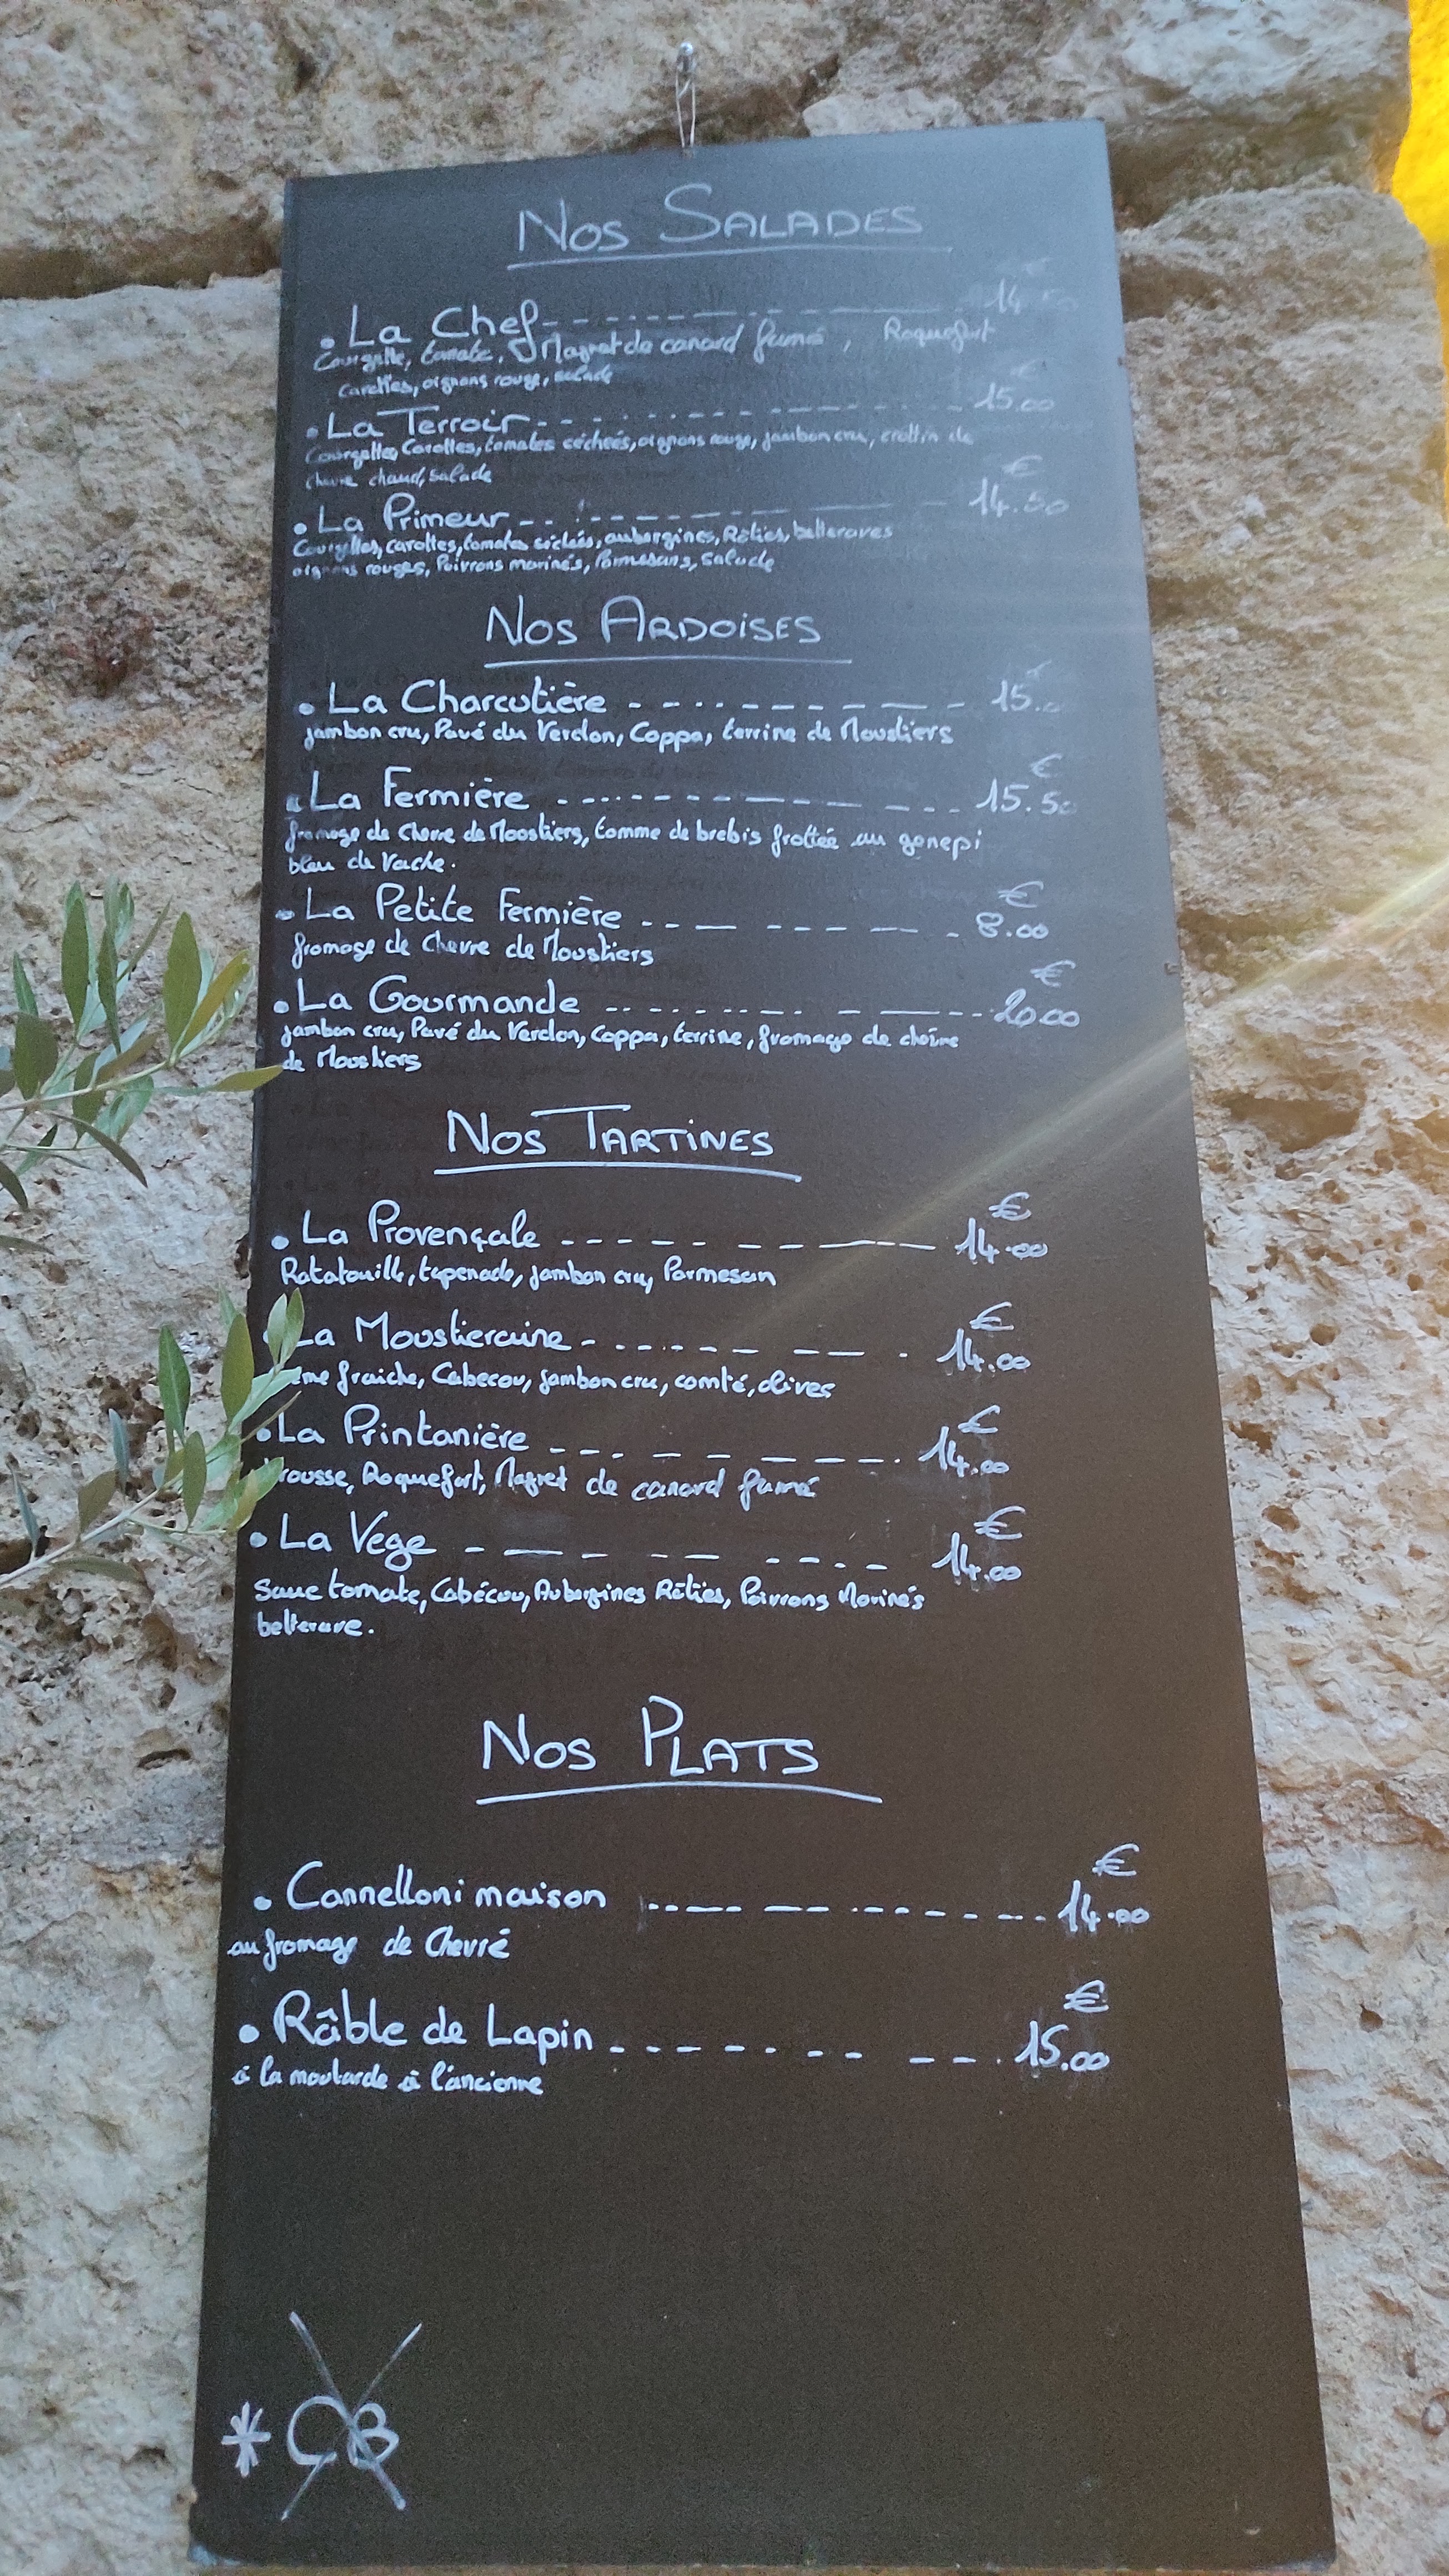 NOS SALADES
• La Chef 14.50
Courgette, tomate, Magret de canard fumé, Roquefort
carottes, oignons rouge, salade
€
• La Terroir 15.00
Courgettes, Carottes, tomates séchées, oignons rouge, jambon cru, crottin de
chèvre chaud, salade
€
• La Primeur 14.50
Courgettes, carottes, tomates séchées, aubergines, Rôties, betteraves
oignons rouges, Poivrons marinés, Parmesans, salade
NOS ARDOISES
• La Charcutière 15.
jambon cru, Pavé du Verdon, Coppa, terrine de Moustiers
€
• La Fermière 15.50
fromage de Chèvre de Moustiers, tomme de brebis frottée au genepi
bleu de Vache.
€
• La Petite Fermière 8.00
fromage de Chevre de Moustiers
€
• La Gourmande 20.00
jambon cru, Pavé du Verdon, Coppa, terrine, fromage de chèvre
de Moustiers
NOS TARTINES
€
• La Provençale 14.00
Ratatouille, tapenade, jambon cru, Parmesan
€
La Moustieraine 14.00
ème fraiche, Cabecou, jambon cru, comté, olives
€
• La Printanière 14.00
brousse, Roquefort, Magret de canard fumé
€
• La Vege 14.00
Sauce tomate, Cabécou, Aubergines Rôties, Poivrons Marinés
betterave.
NOS PLATS
€
• Cannelloni maison 14.00
au fromage de Chevré
€
• Râble de Lapin 15.00
à la moutarde à l'ancienne
* CB